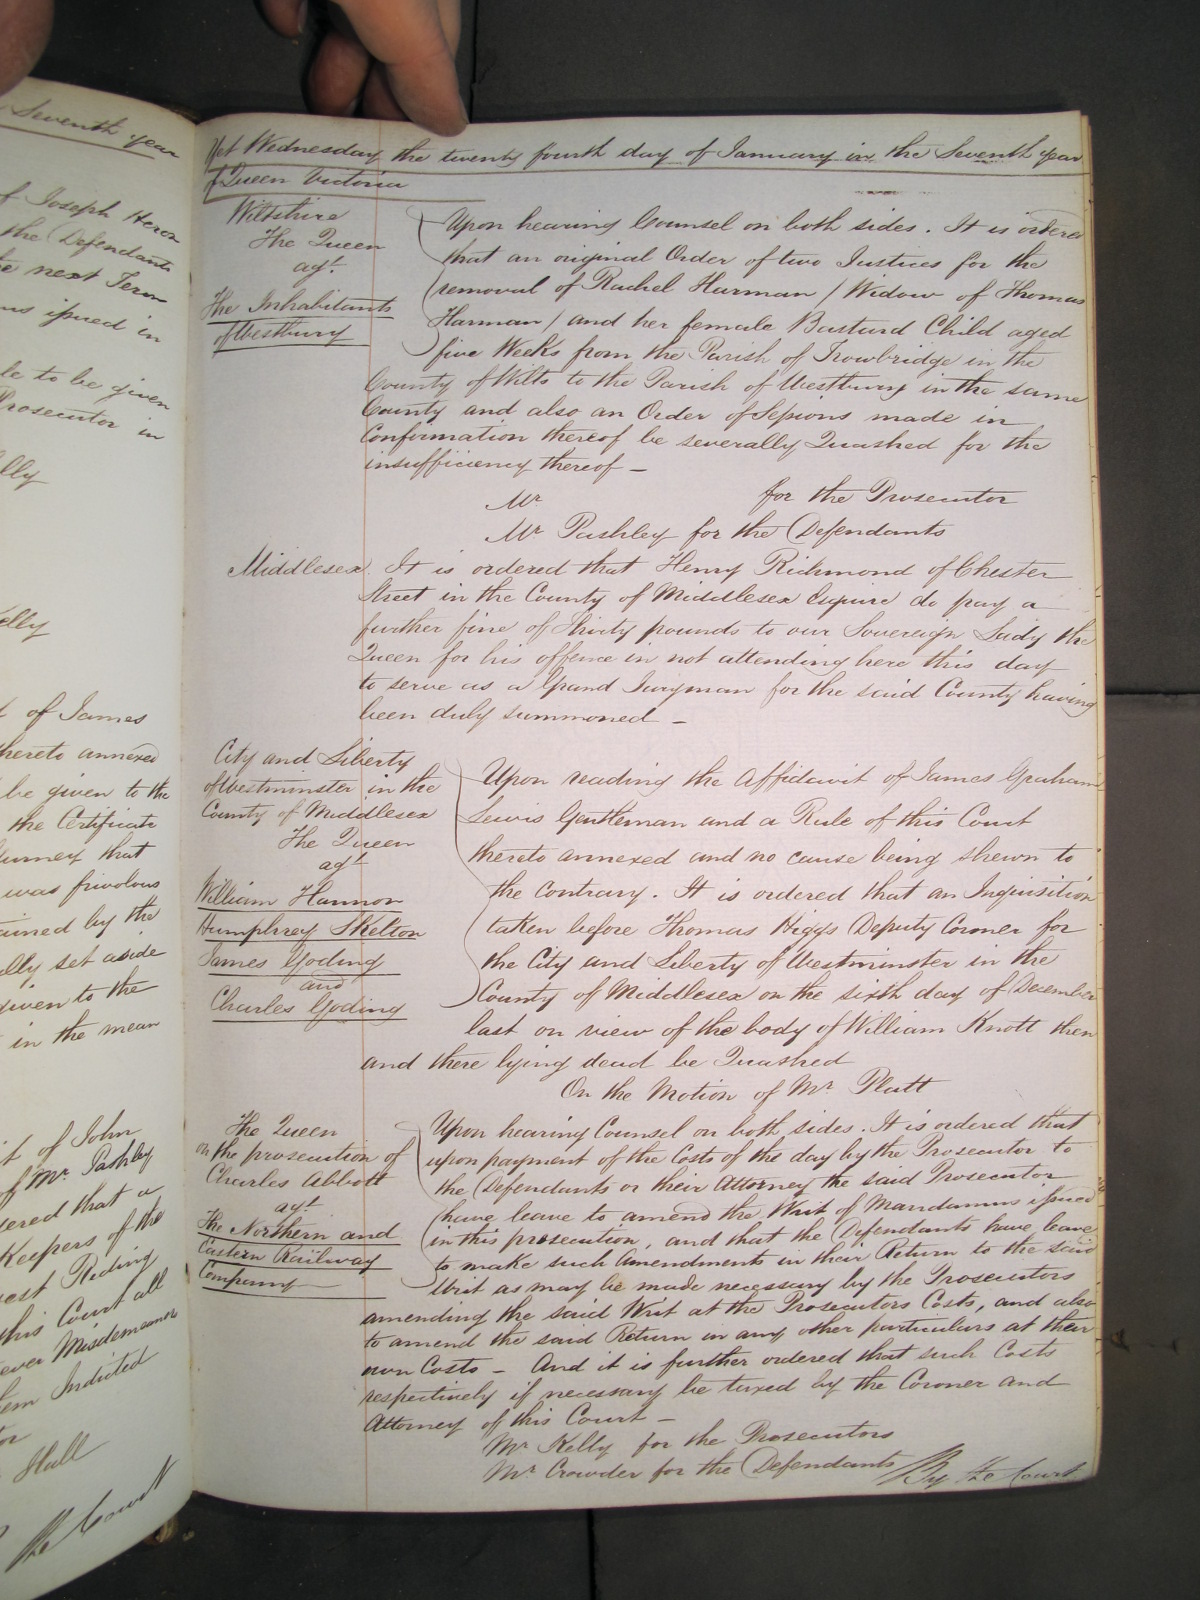 Seventh year
of Joseph Heron
the Defendants
next Term
issued in
to be given
Prosecutor in
of James
hereto annexed
be given to the
the Certificate
that
was frivolous
by the
set aside
given to the
in the mean
of John
of Mr. Pashley
ordered that a
Keepers of the
West Riding
this Court all
Misdemeanors
Indicted
Hall
the Court
Yet Wednesday the twenty fourth day of January in the Seventh year
of Queen Victoria
Wiltshire
The Queen
agt.
The Inhabitants
of Westbury
Upon hearing Counsel on both sides. It is ordered
that an original Order of two Justices for the
removal of Rachel Harman / Widow of Thomas
Harman / and her female Bastard Child aged
five Weeks from the Parish of Trowbridge in the
County of Wilts to the Parish of Westbury in the same
County and also an Order of Sessions made in
Confirmation thereof be severally Quashed for the
insufficiency thereof –
Mr. for the Prosecutor
Mr. Pashley for the Defendants
Middlesex. It is ordered that Henry Richmond of Chester
Street in the County of Middlesex Esquire do pay a
further fine of thirty pounds to our Sovereign Lady the
Queen for his offence in not attending here this day
to serve as a Grand Juryman for the said County having
been duly summoned –
City and Liberty
of Westminster in the
County of Middlesex
The Queen
agt.
William Hannon
Humphrey Skelton
James Goding
and
Charles Goding
Upon reading the Affidavit of James Graham
Lewis Gentleman and a Rule of this Court
thereto annexed and no cause being shewn to
the contrary. It is ordered that an Inquisition
taken before Thomas Higgs Deputy Coroner for
the City and Liberty of Westminster in the
County of Middlesex on the sixth day of December
last on view of the body of William Knott then
and there lying dead be Quashed
On the Motion of Mr. Platt
The Queen
on the prosecution of
Charles Abbott
agt.
The Northern and
Eastern Railway
Company
Upon hearing Counsel on both sides. It is ordered that
upon payment of the Costs of the day by the Prosecutor to
the Defendants or their Attorney the said Prosecutor
have leave to amend the Writ of Mandamus issued
in this prosecution, and that the Defendants have leave
to make such Amendments in their Return to the said
Writ as may be made necessary by the Prosecutors
amending the said Writ at the Prosecutors Costs, and also
to amend the said Return in any other particulars at their
own Costs – And it is further ordered that such Costs
respectively if necessary be taxed by the Coroner and
Attorney of this Court –
Mr. Kelly for the Prosecutors
Mr. Crowder for the Defendants By the Court